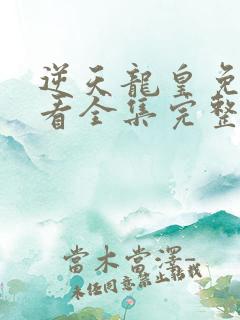 逆天龍皇免
看全集完整
當木當澤-
未经同意禁止轉載